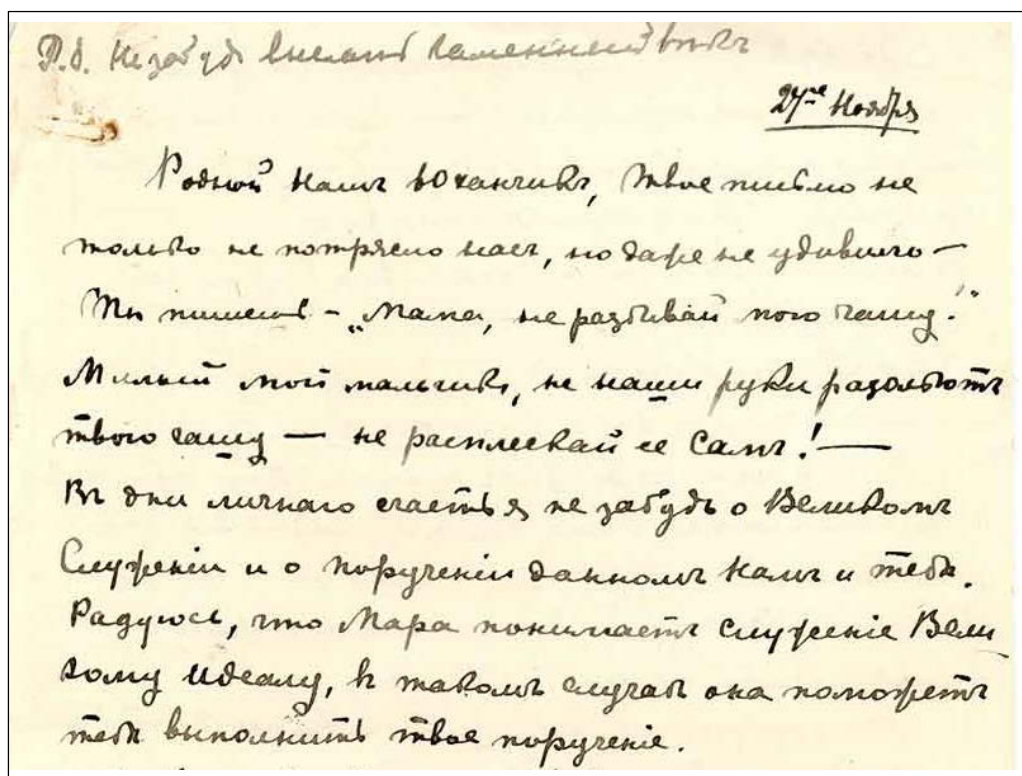 P.S. Не забудь выслать каменный вѣкъ
24ое Ноября
Родной нашъ Юханчикъ, твое письмо не
только не потрясло насъ, но даже не удивило —
Ты пишешь — „Мама, не разбивай мою чашу!"
Милый мой мальчикъ, не наши руки разольютъ
твою чашу — не расплескай ее Самъ! —
Въ дни личнаго счастья не забудь о Великомъ
Служеніи и о порученіи данномъ Намъ и тебѣ.
Радуюсь, что Мара понимаетъ служеніе Вели
кому идеалу, в такомъ случаѣ она поможетъ
тебѣ выполнить твое порученіе.